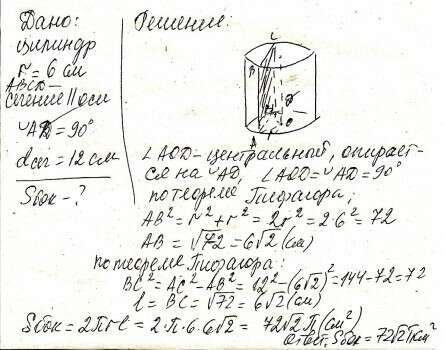 Дано:
цилиндр
r = 6 см
ABCD –
сечение || оси
◡AD = 90°
dсеч = 12 см
Sбок – ?
Решение:
C
B
A
O
∠AOD – центральный, опирает-
ся на ◡AD, ∠AOD = ◡AD = 90°
по теореме Пифагора:
AB² = r² + r² = 2r² = 2·6² = 72
AB = √72 = 6√2 (см)
по теореме Пифагора:
BC² = AC² – AB² = 12² – (6√2)² = 144 – 72 = 72
l = BC = √72 = 6√2 (см)
Sбок = 2πrl = 2·π·6·6√2 = 72√2 π (см²)
Ответ: Sбок = 72√2 π см²